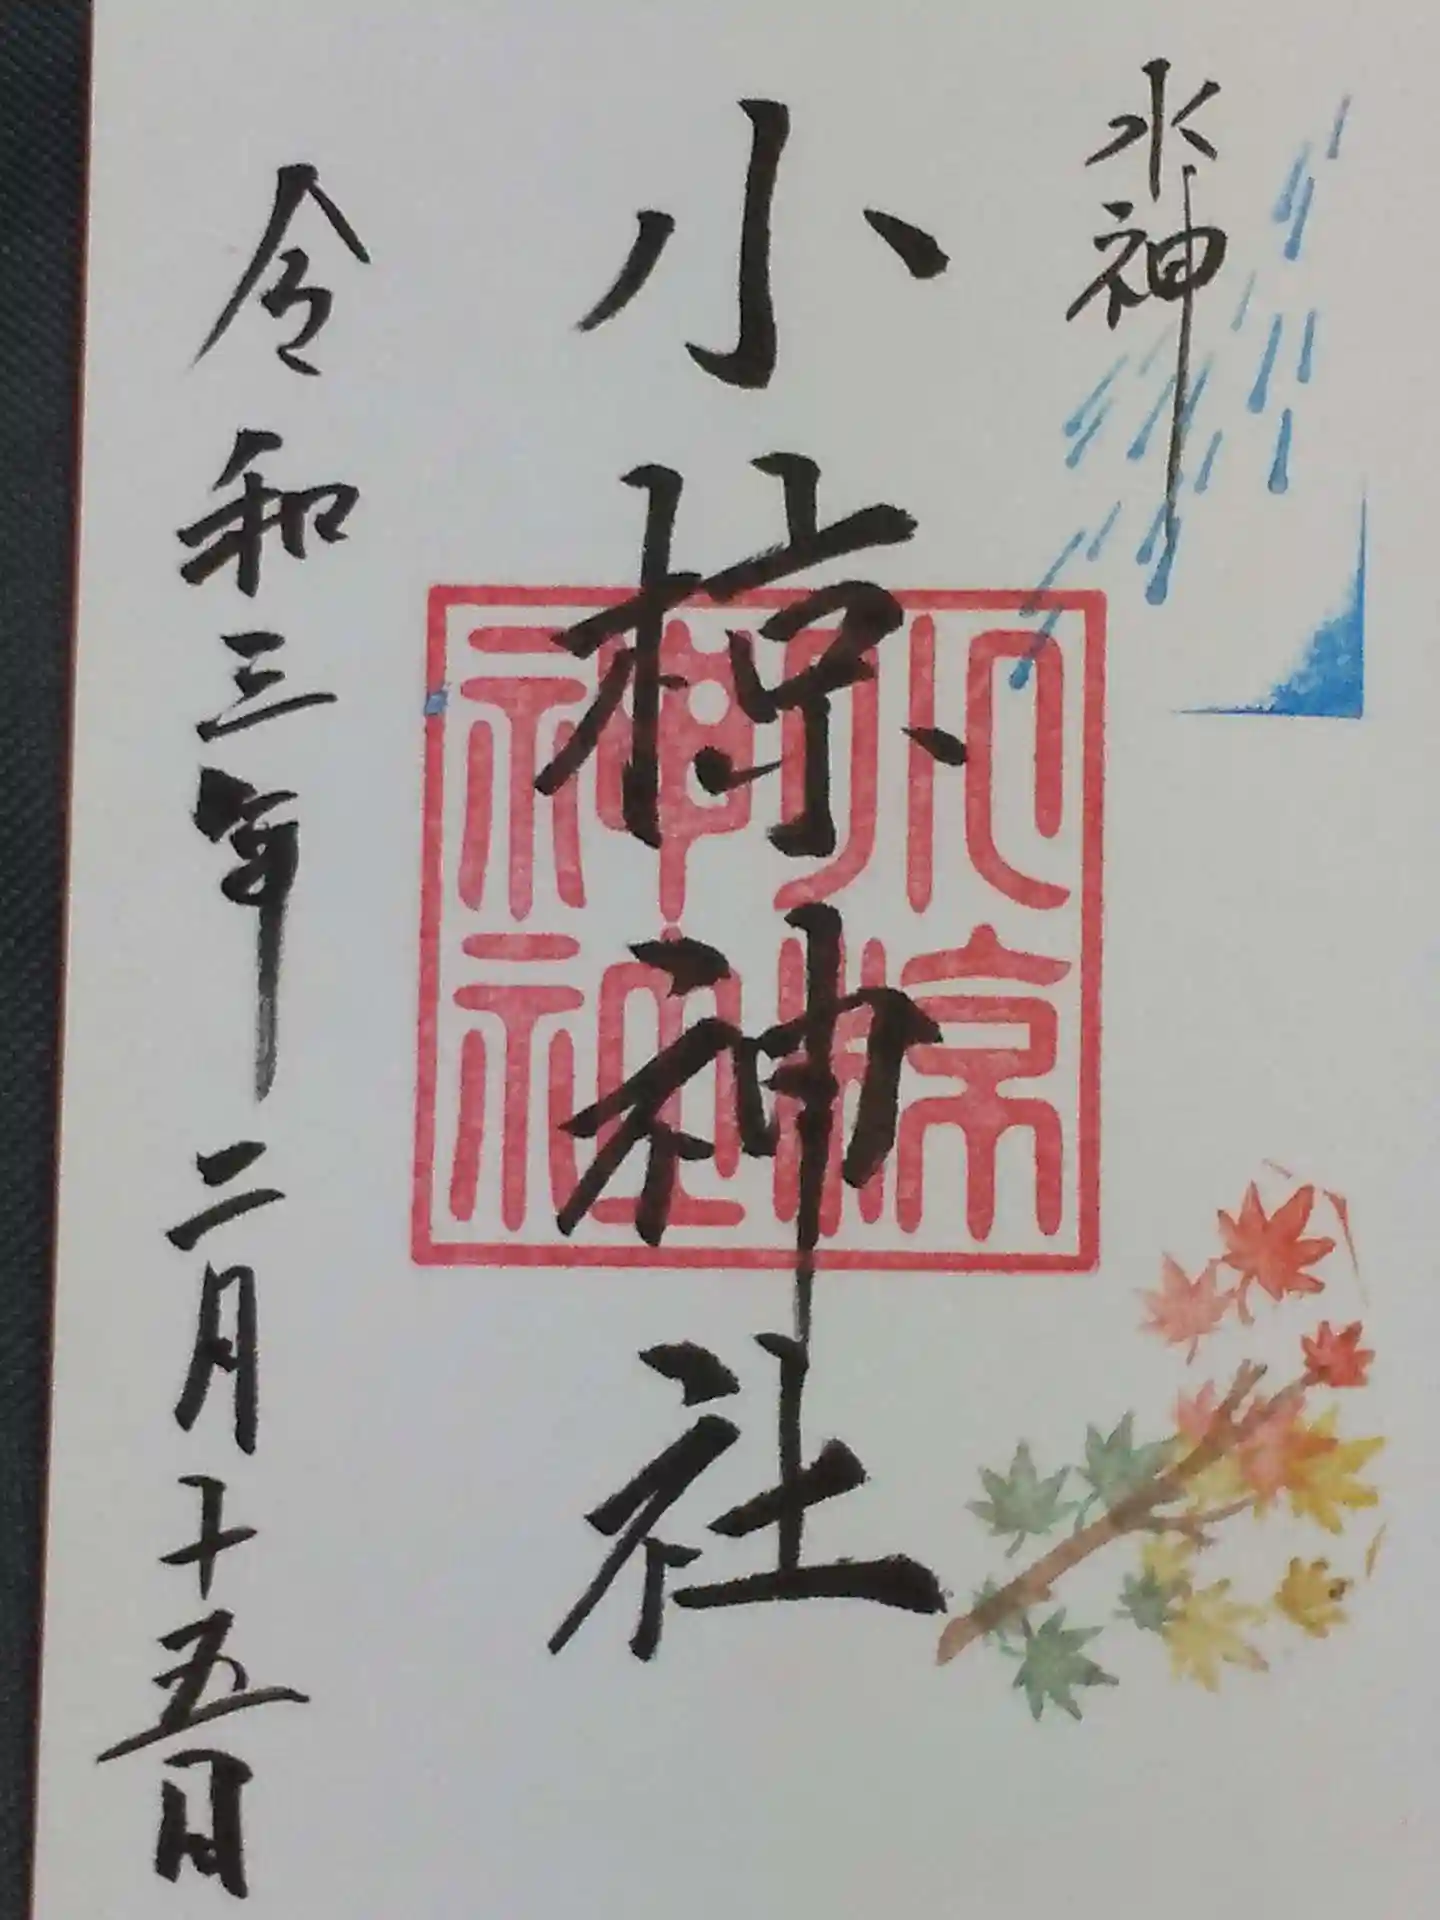 水神
小椋神社
小椋
神社
令和三年二月十五日